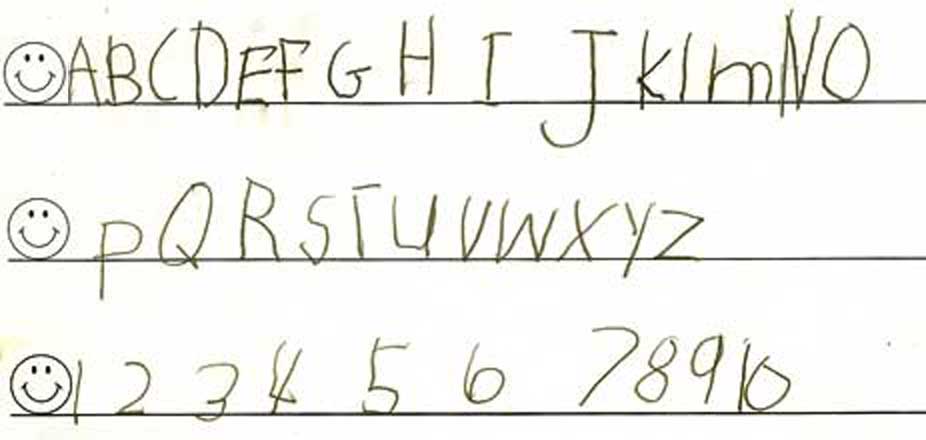 A B C D E F G H I J K l m N O
p Q R S T U V W X Y Z
1 2 3 4 5 6 7 8 9 10